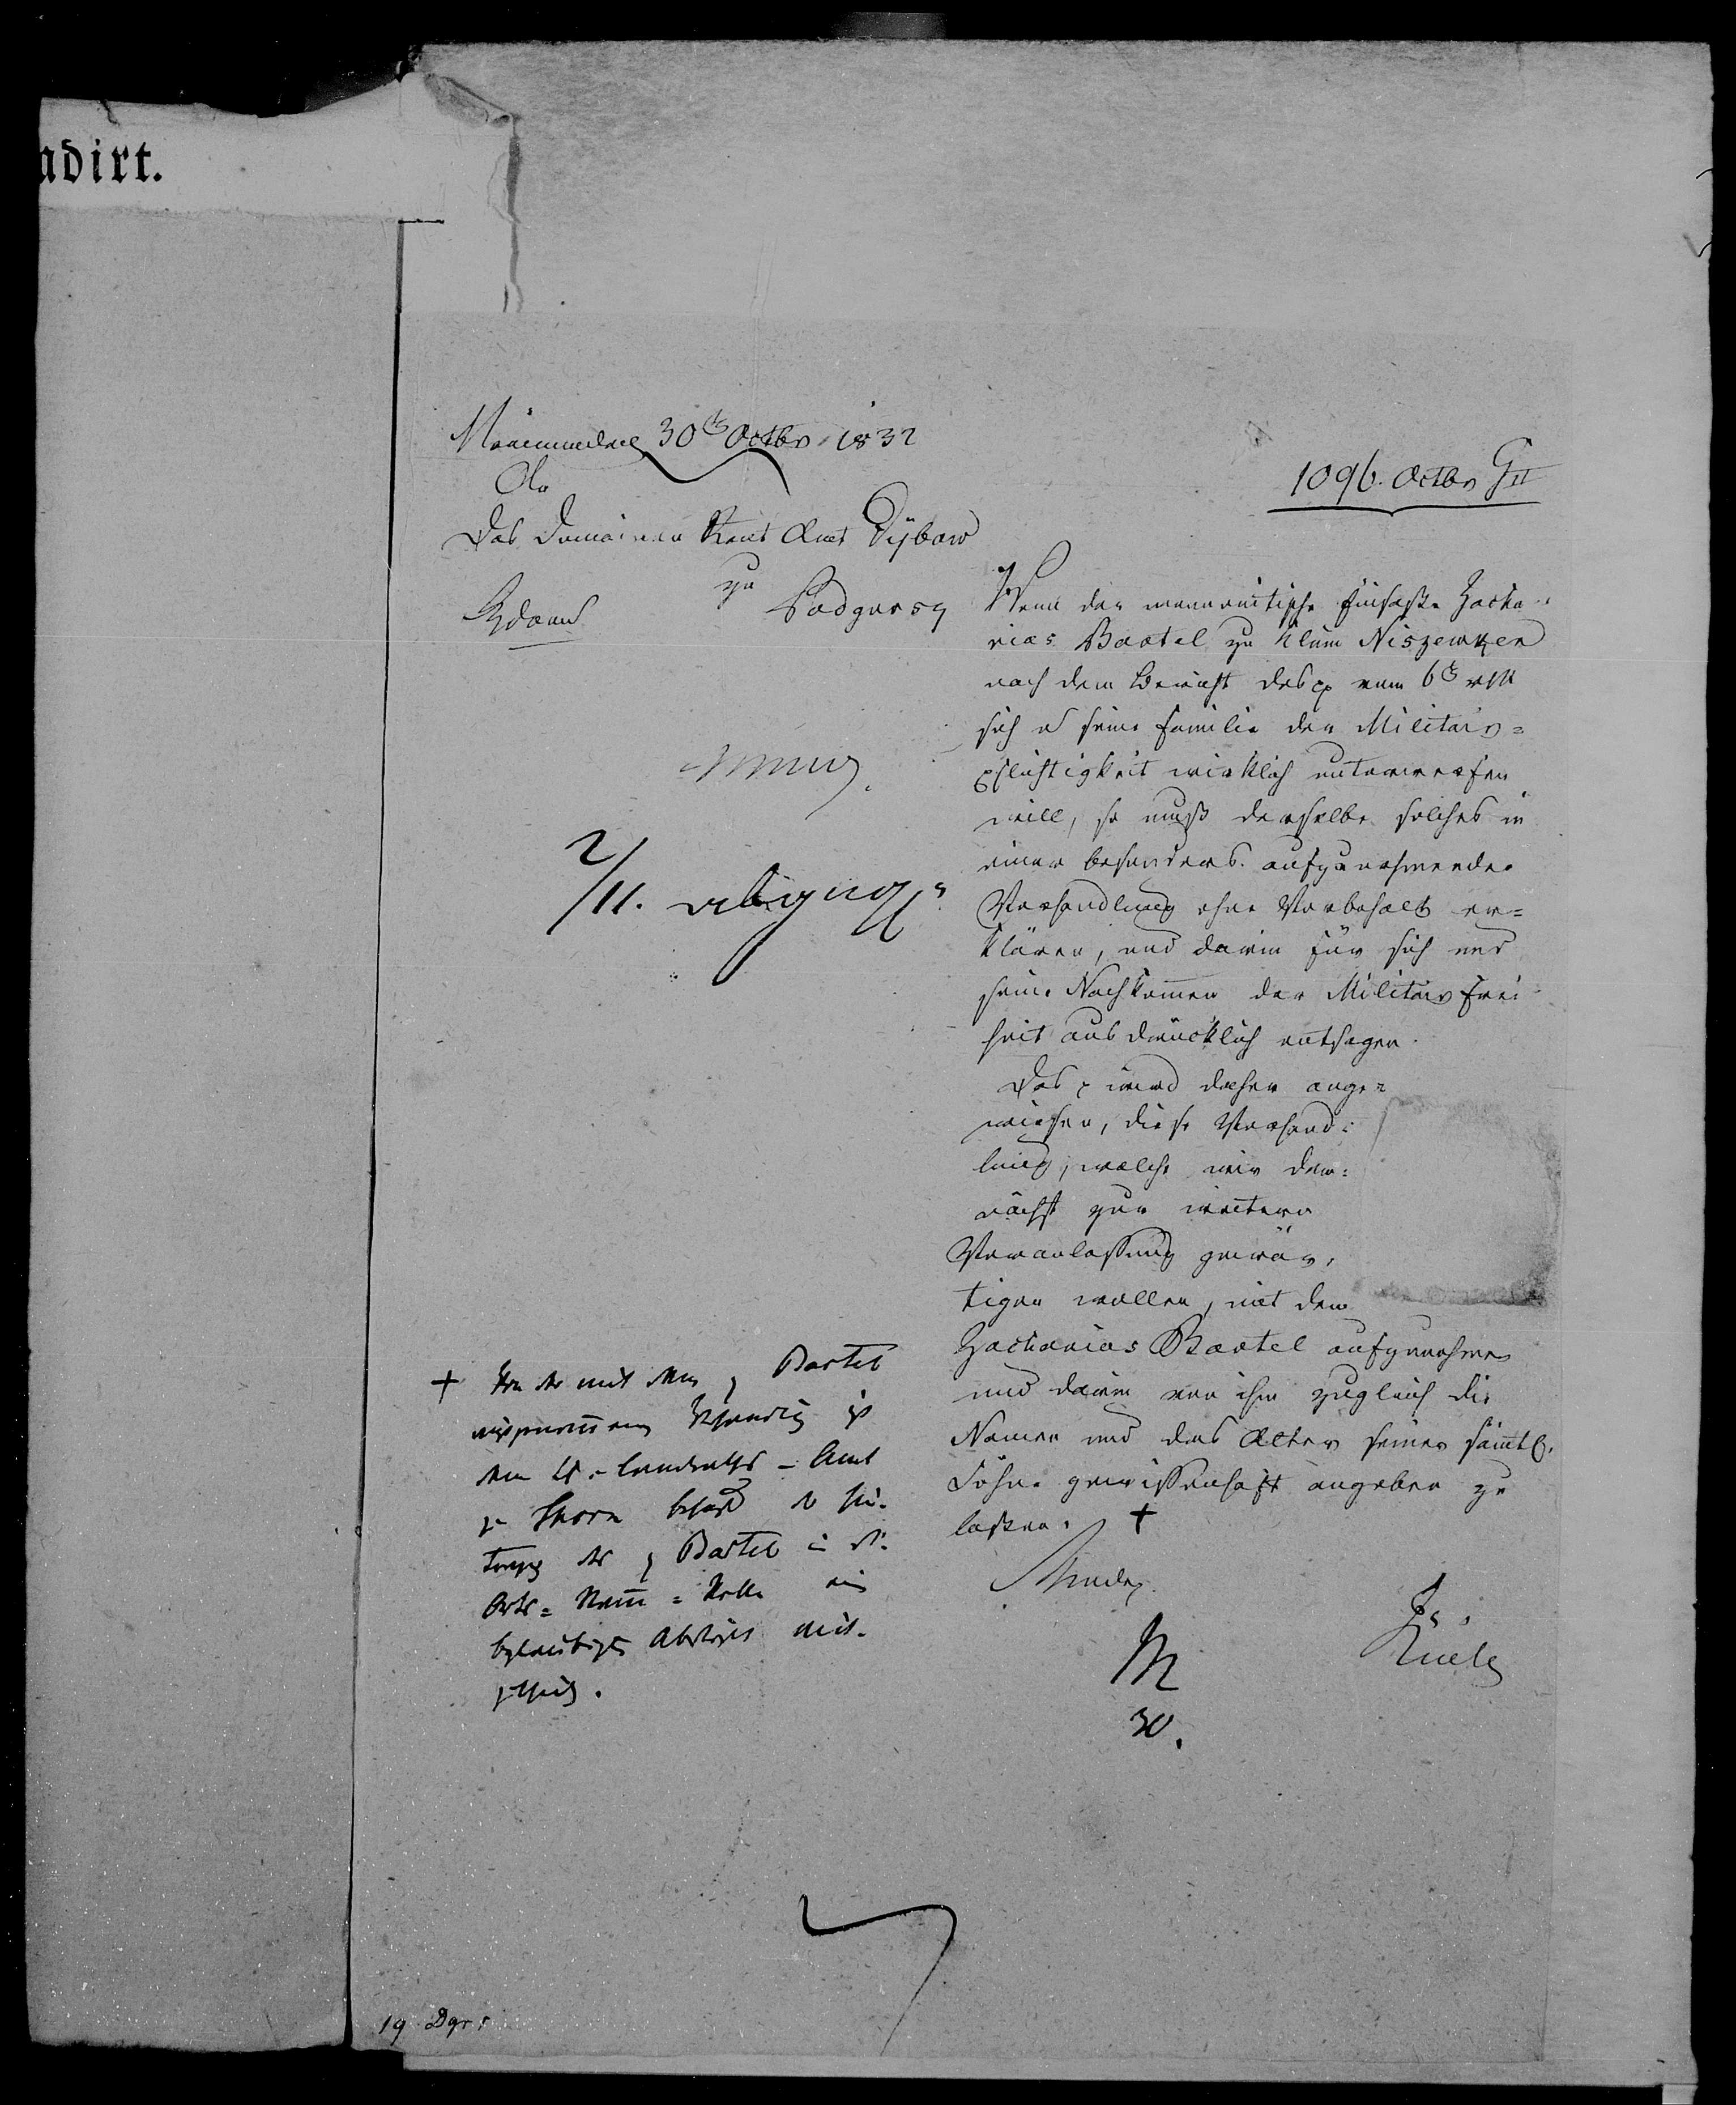 adirt.
Marienwerder 30t Octbr 1832
An
das Domainen Rent Amt Dybow
zu Podgorsz
1096. Octbr G II
Wenn der mennonitische Einsasse Zacha-
rias Bartel zu Klein Niszewken
nach dem Bericht des p vom 6t
sich u seine Familie der Militair=
pflichtigkeit wirklich unterwerfen
will, so muß derselbe solches in
einer besonders aufzunehmenden
Verhandlung ohne Vorbehalt er=
klären, und darin für sich und
seine Nachkommen der Militairfrei
heit ausdrücklich entsagen.
Das p wird daher ange=
wiesen, diese Verhand=
lung, welche wir dem=
nächst zur weitern
Veranlassung gewär=
tigen wollen, mit dem
Zacharias Bartel aufzunehmen
und darin von ihm zugleich die
Namen und das Alter seiner sämtl.
Söhne gewissenhaft angeben zu
lassen. +
2/11.
+ Von der mit dem p Bartel
aufgenommenen Verhandlg ist
dem Landraths-Amt
zu Thorn behufs der Ein-
tragg des p Bartel in die
Orts=Stamm=Rolle eine
beglaubigte Abschrift mit-
zutheilen.
M
30.
19 Dgr.